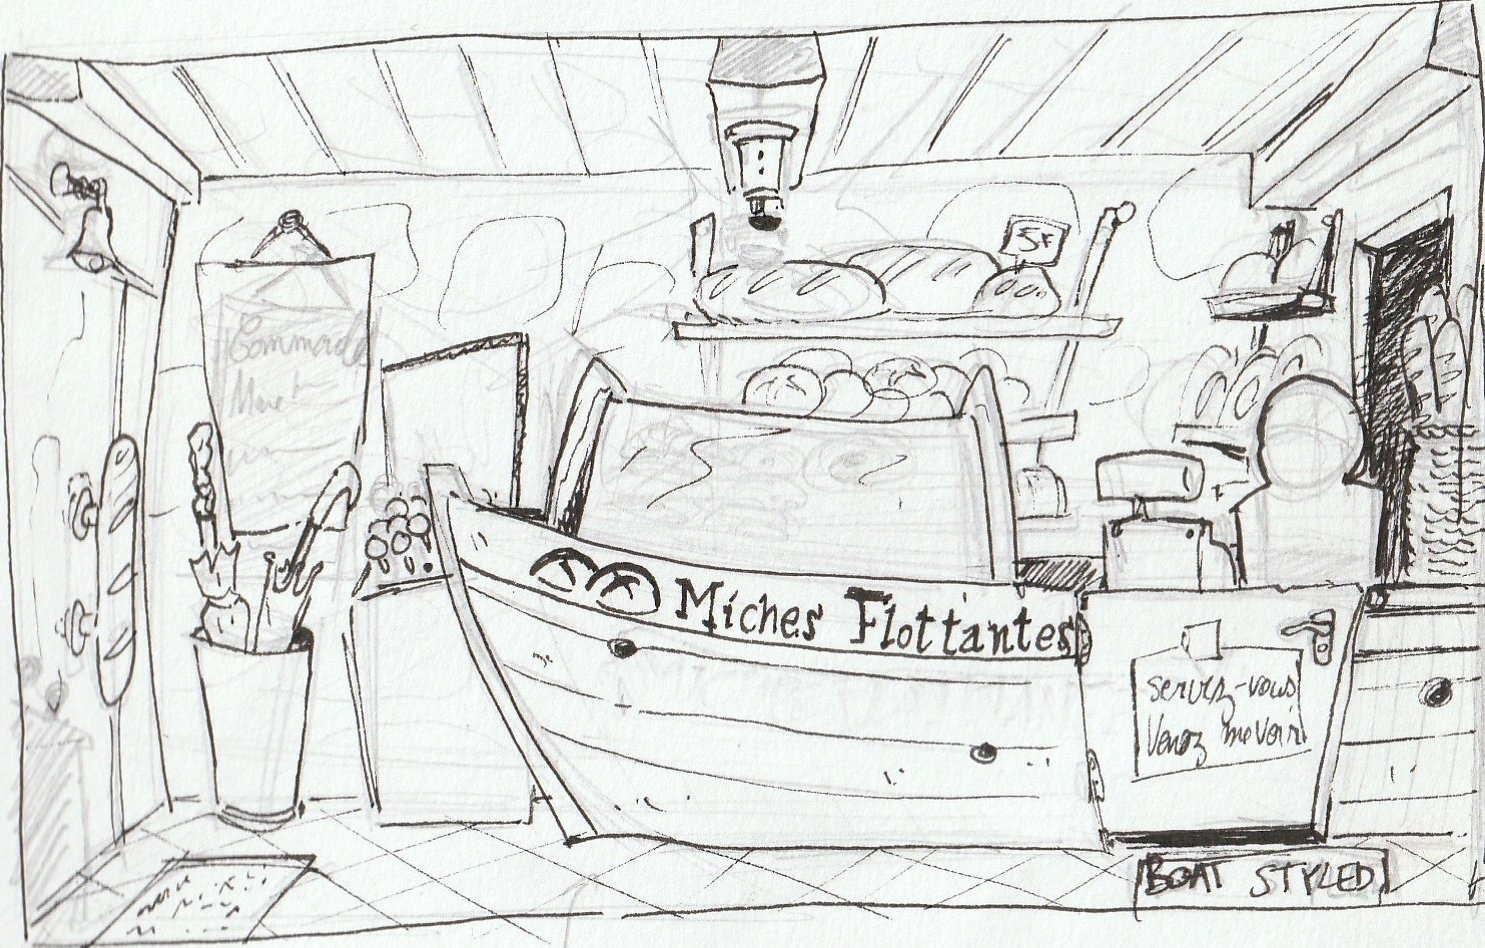 5F
Commande
Miches Flottantes
servez-vous
Venez me voir
BOAT STYLED